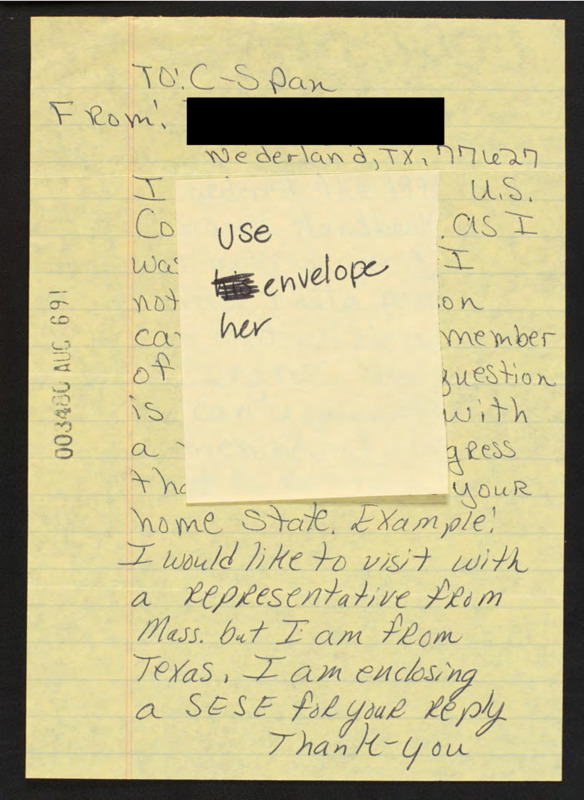 TO: C-Span
From:
Nederland, TX, 77627
I U.S.
Co . as I
was I
not on
ca member
of question
is with
a gress
tha your
home State. Example:
I would like to visit with
a Representative from
Mass. but I am from
Texas. I am enclosing
a SESE for your reply
Thank-you
use
envelope
her
003480 AUG 69!